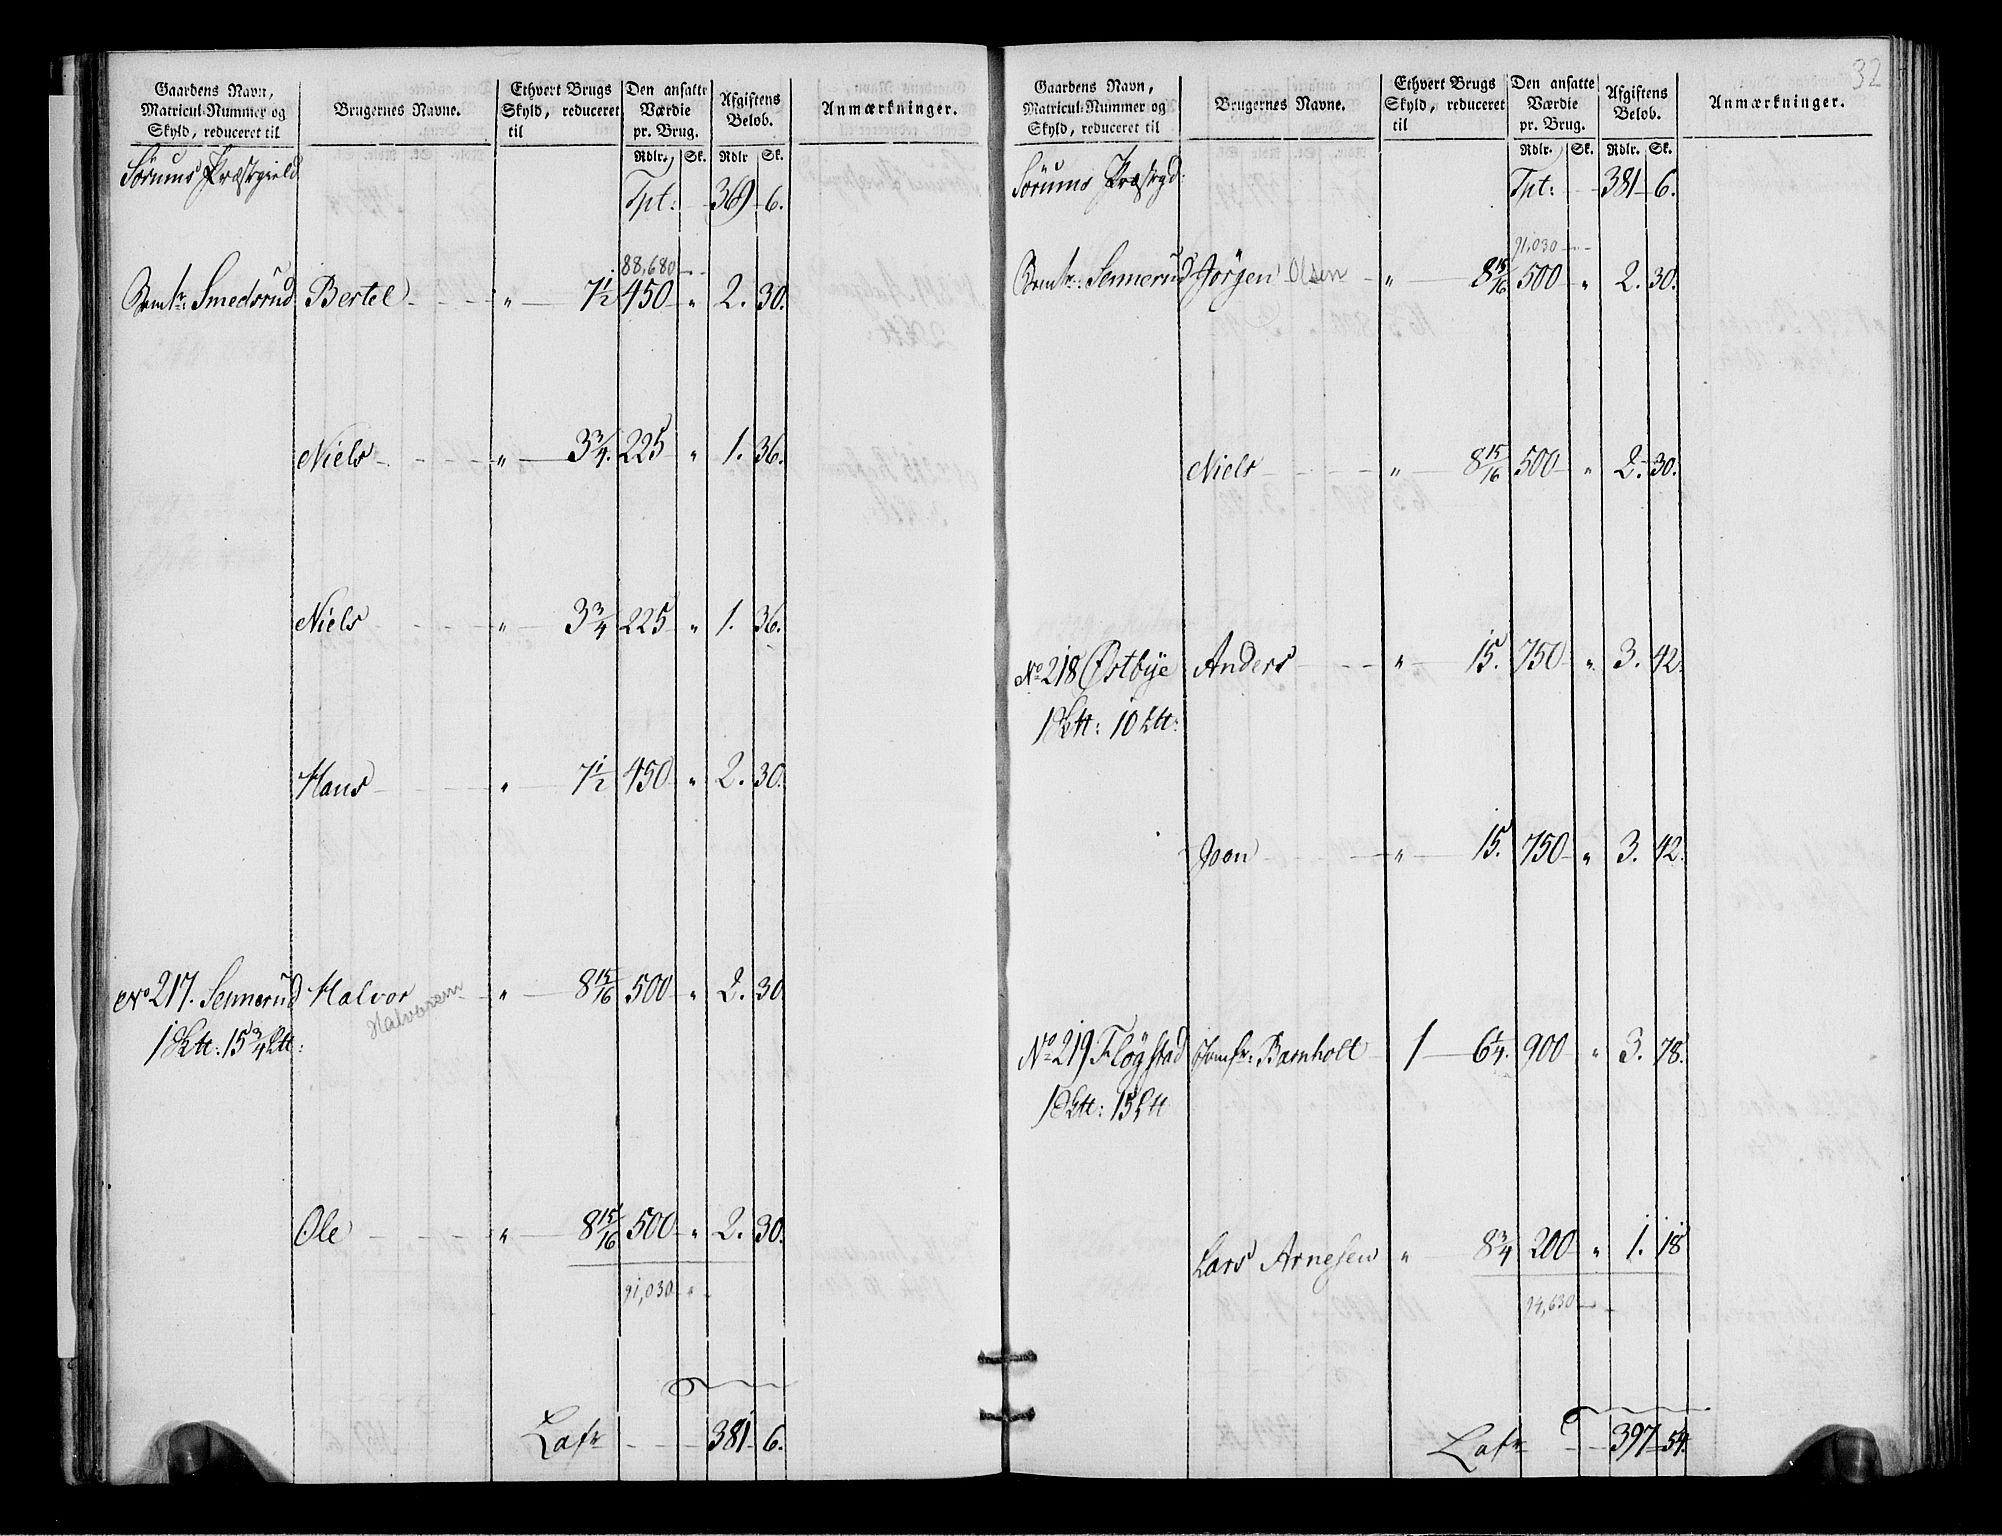 Gaardens Navn, Matricul-Nummer og Skyld, reduceret til | Brugernes Navne. | Ethvert Brugs Skyld, reduceret til | Den ansatte Værdie pr. Brug. | Afgiftens Beløb. | Anmærkninger.
Rdlr. Sk. Rdlr Sk.
Sørums Præstegield
Tpt: 369 6.
88,680
Smedsrud Bertel " 7 1/2 450 " 2. 30.
Niels " 3 3/4. 225 " 1. 36.
Niels " 3 3/4 225 " 1. 36.
Hans " 7 1/2 450 " 2. 30.
No 217. Sennerud Halvor " 8 15/16 500 " 2. 30
Halvorsen
1 15 3/4
Ole " 8 15/16 500 " 2. 30.
91,030 "
Lafr 381 6.
32
Gaardens Navn, Matricul-Nummer og Skyld, reduceret til | Brugernes Navne. | Ethvert Brugs Skyld, reduceret til | Den ansatte Værdie pr. Brug. | Afgiftens Beløb. | Anmærkninger.
Rdlr. Sk. Rdlr. Sk.
Sørums Præstgd:
Tpt: 381 6.
91,030
Sennerud Jörgen Olsen " 8 15/16 500 " 2. 30.
Niels " 8 15/16 500 " 2. 30.
No 218 Østbye Anders " 15. 750 " 3. 42.
1 10
Joen " 15. 750 " 3. 42.
No 219 Fløgstad Jomfr: Bamholt 1 6 1/4. 900 " 3. 78.
1 15
Lars Arnesen " 8 3/4 200 " 1. 18
94,630
Lafr 397 54.